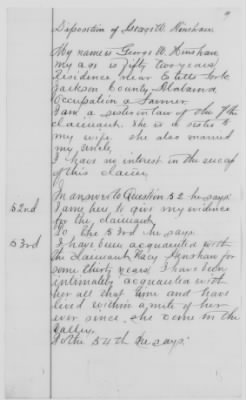 9
Deposition of George W. Hinshaw
My name is George W. Hinshaw
my age is fifty two years
Residence near Estills Fork
Jackson County, Alabama
Occupation a Farmer.
I am a
claimant. She is a sister to
my wife she also married
my uncle,
I have no interest in the success
of this claim,
In answer to Question 52 he says:
52nd I am here to give my evidence
for the claimant
To the 53rd he says
53rd I have been acquainted with
the claimant Hinshaw for
some thirty years I have been
intimately acquainted with
her all that time and have
lived within a mile of her
ever since she come in the
valley.
To the 54th he says: